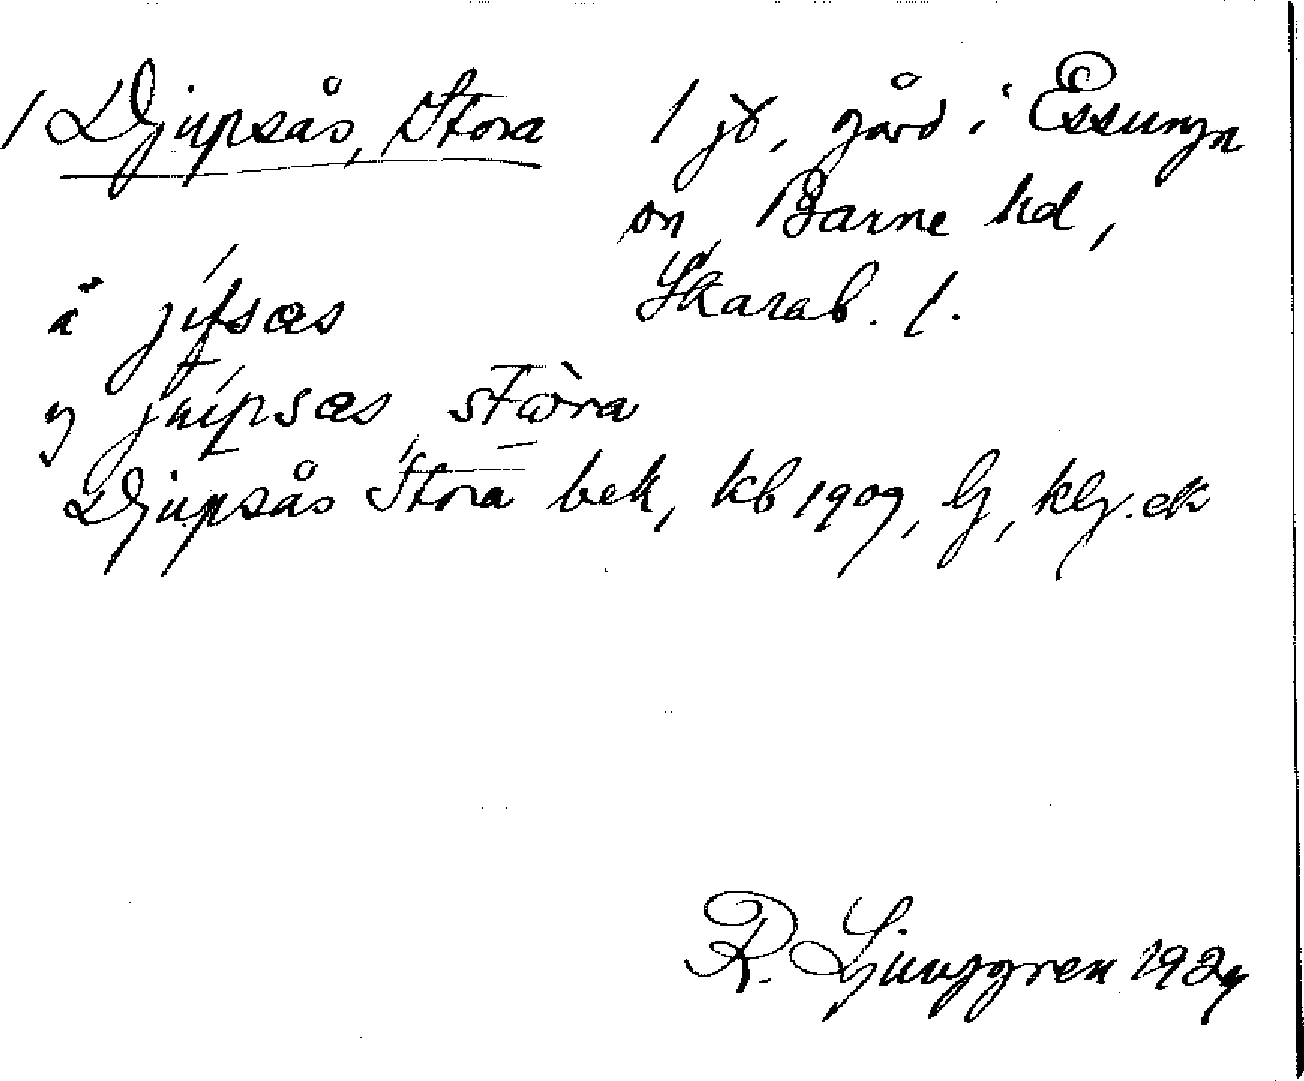 / Djupsås, Stora
1 jb, gård i Essunga
sn, Barne hd,
Skarab. l.
ä júpsɷs
y júipsɷs stɷ̀ra
Djupsås Stora bek, kb 1909, G, klg. ek
R. Ljunggren 1924